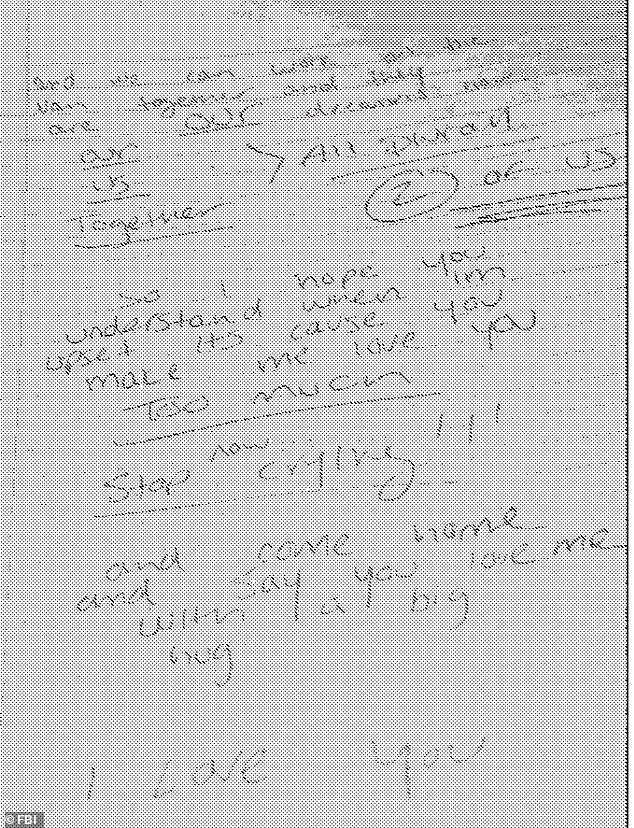 and we can work on the
van together and they
are OUR dreams now
our
us > All Dream
Together (2) OF US
So I hope you
understand when im
upset its cause you
make me love you
Too much
Stop now crying!!!
and come home
and say you love me
with a big
hug
I Love You
© FBI